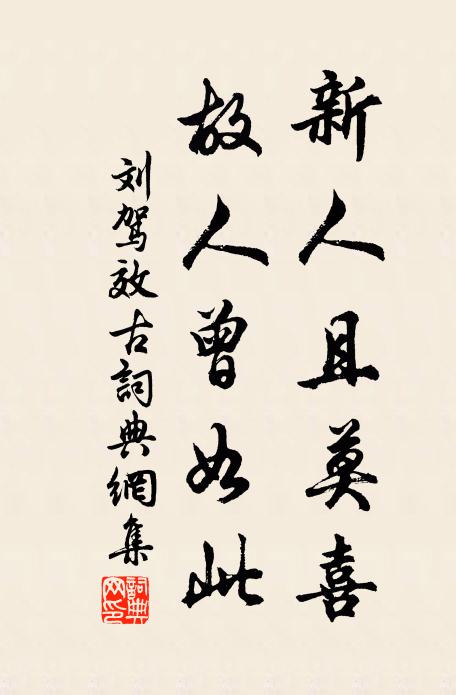 新人且莫喜
故人曾如此
刘驾效古詞典網集
詞典网印